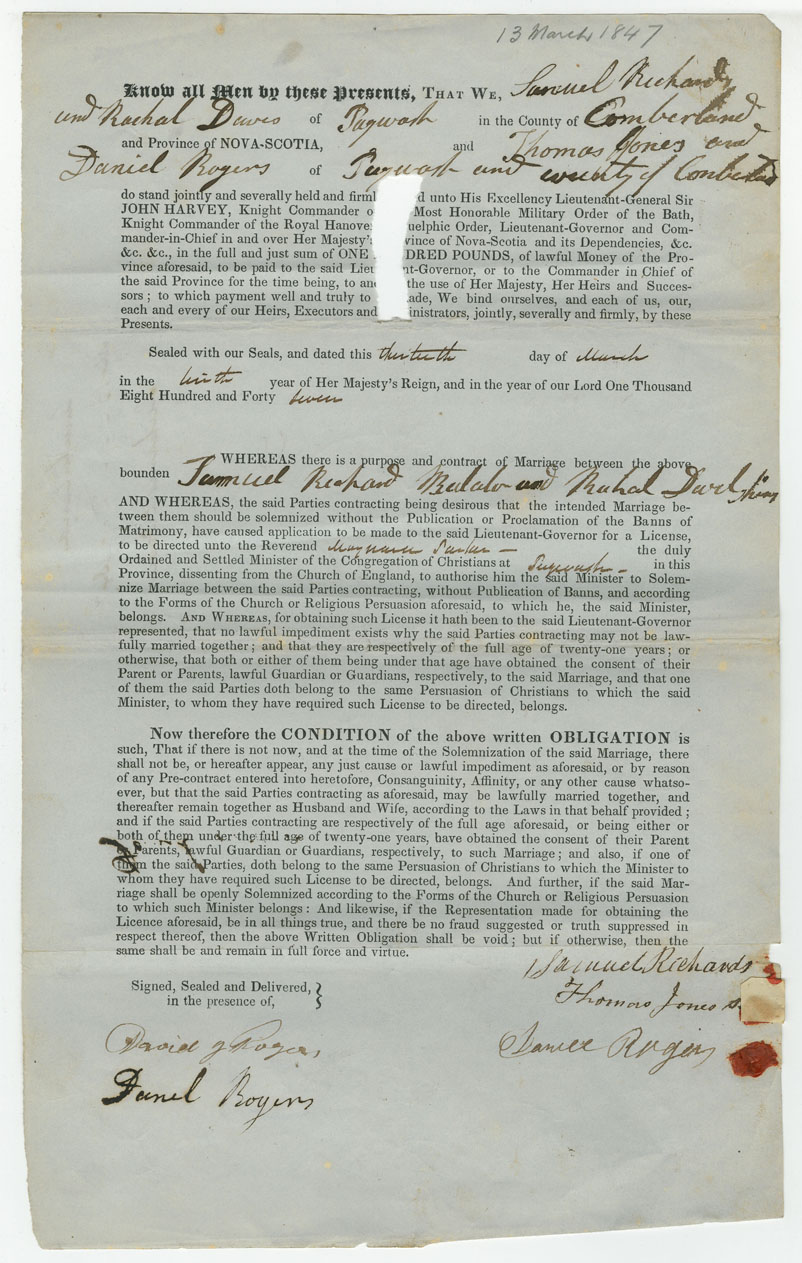 13 March 1847
Know all Men by these Presents, THAT WE, Samuel Richards
and Rachal Daves of Pugwash in the County of Comberland
and Province of NOVA-SCOTIA, and Thomas Jones and
Daniel Rogers of Pugwash and county of Comberland
do stand jointly and severally held and firml d unto His Excellency Lieutenant-General Sir
JOHN HARVEY, Knight Commander o Most Honorable Military Order of the Bath,
Knight Commander of the Royal Hanove uelphic Order, Lieutenant-Governor and Com-
mander-in-Chief in and over Her Majesty' vince of Nova-Scotia and its Dependencies, &c.
&c. &c., in the full and just sum of ONE DRED POUNDS, of lawful Money of the Pro-
vince aforesaid, to be paid to the said Lieu nt-Governor, or to the Commander in Chief of
the said Province for the time being, to an the use of Her Majesty, Her Heirs and Succes-
sors ; to which payment well and truly to ade, We bind ourselves, and each of us, our,
each and every of our Heirs, Executors and inistrators, jointly, severally and firmly, by these
Presents.
Sealed with our Seals, and dated this thirteenth day of March
in the ninth year of Her Majesty's Reign, and in the year of our Lord One Thousand
Eight Hundred and Forty seven
WHEREAS there is a purpose and contract of Marriage between the above
bounden Samuel Richard and Rachal
AND WHEREAS, the said Parties contracting being desirous that the intended Marriage be-
tween them should be solemnized without the Publication or Proclamation of the Banns of
Matrimony, have caused application to be made to the said Lieutenant-Governor for a License,
to be directed unto the Reverend Maynard Parker the duly
Ordained and Settled Minister of the Congregation of Christians at Pugwash in this
Province, dissenting from the Church of England, to authorise him the said Minister to Solem-
nize Marriage between the said Parties contracting, without Publication of Banns, and according
to the Forms of the Church or Religious Persuasion aforesaid, to which he, the said Minister,
belongs. AND WHEREAS, for obtaining such License it hath been to the said Lieutenant-Governor
represented, that no lawful impediment exists why the said Parties contracting may not be law-
fully married together ; and that they are respectively of the full age of twenty-one years ; or
otherwise, that both or either of them being under that age have obtained the consent of their
Parent or Parents, lawful Guardian or Guardians, respectively, to the said Marriage, and that one
of them the said Parties doth belong to the same Persuasion of Christians to which the said
Minister, to whom they have required such License to be directed, belongs.
Now therefore the CONDITION of the above written OBLIGATION is
such, That if there is not now, and at the time of the Solemnization of the said Marriage, there
shall not be, or hereafter appear, any just cause or lawful impediment as aforesaid, or by reason
of any Pre-contract entered into heretofore, Consanguinity, Affinity, or any other cause whatso-
ever, but that the said Parties contracting as aforesaid, may be lawfully married together, and
thereafter remain together as Husband and Wife, according to the Laws in that behalf provided ;
and if the said Parties contracting are respectively of the full age aforesaid, or being either or
both of them under the full age of twenty-one years, have obtained the consent of their Parent
or Parents, lawful Guardian or Guardians, respectively, to such Marriage ; and also, if one of
them the said Parties, doth belong to the same Persuasion of Christians to which the Minister to
whom they have required such License to be directed, belongs. And further, if the said Mar-
riage shall be openly Solemnized according to the Forms of the Church or Religious Persuasion
to which such Minister belongs : And likewise, if the Representation made for obtaining the
Licence aforesaid, be in all things true, and there be no fraud suggested or truth suppressed in
respect thereof, then the above Written Obligation shall be void ; but if otherwise, then the
same shall be and remain in full force and virtue.
Samuel Richards
Signed, Sealed and Delivered,
in the presence of,
Thomas Jones
David J Rogers
Daniel Rogers
Danel Rogers